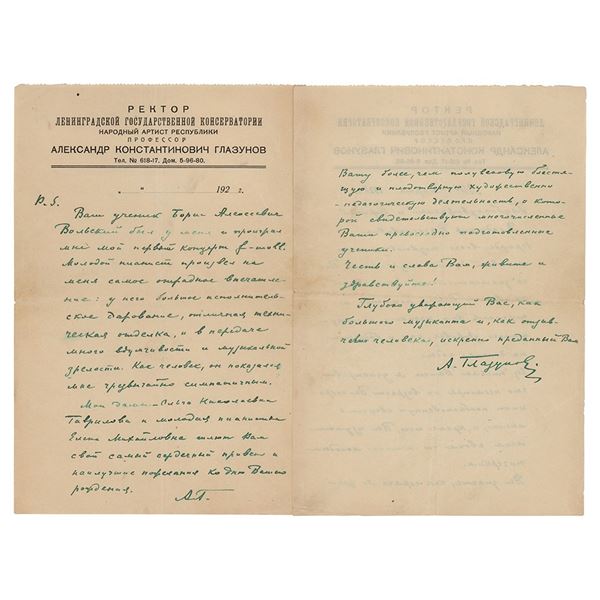 РЕКТОР
ЛЕНИНГРАДСКОЙ ГОСУДАРСТВЕННОЙ КОНСЕРВАТОРИИ
НАРОДНЫЙ АРТИСТ РЕСПУБЛИКИ
ПРОФЕССОР
АЛЕКСАНДР КОНСТАНТИНОВИЧ ГЛАЗУНОВ
Тел. № 618-17. Дом. 5-96-80.
" " 192 г.
P.S.
Ваш ученик Борис Алексеевич
Вольский был у меня и проиграл
мне мой первый концерт f-moll.
Молодой пианист произвел на
меня самое отрадное впечатле-
ние: у него большое исполнитель-
ское дарование, отличная техни-
ческая отделка, и в передаче
много вдумчивости и музыкальной
зрелости. Как человек, он показался
мне чрезвычайно симпатичным.
Мои дамы - Ольга Николаевна
Гаврилова и молодая пианистка
Елена Михайловна шлют Вам
свой самый сердечный привет и
наилучшие пожелания ко дню Вашего
рождения.
А.Г.
Вашу более, чем полувековую блестя-
щую и плодотворную художественно-
-педагогическую деятельность, о кото-
рой свидетельствуют многочисленные
Ваши превосходно подготовленные
ученики.
Честь и слава Вам, живите и
здравствуйте!
Глубоко уважающий Вас, как
большого музыканта и, как отзыв-
чивого человека, искренно преданный Вам
А. Глазунов